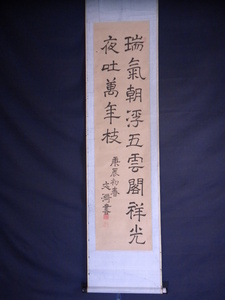 瑞氣朝浮五雲閣祥光
夜吐萬年枝
庚辰初春